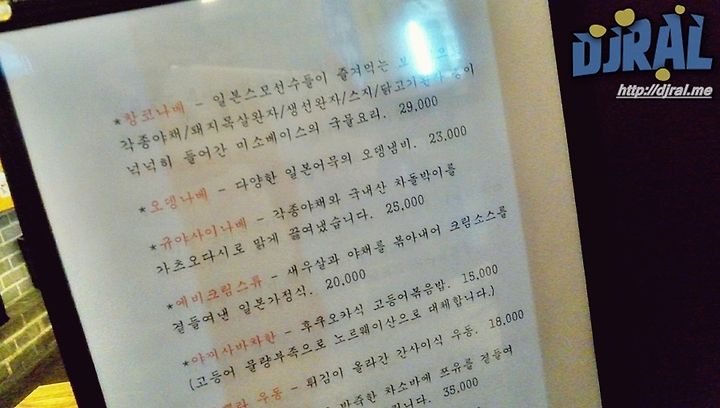 DJRAL
http://djral.me
*창코나베 - 일본스모선수들이 즐겨먹는
각종야채/돼지목살완자/생선완자/스지/닭고기완자 등이
넉넉히 들어간 미소베이스의 국물요리. 29,000
*오뎅나베 - 다양한 일본어묵의 오뎅냄비. 23,000
*규야사이나베 - 각종야채와 국내산 차돌박이를
가츠오다시로 맑게 끓여냈습니다. 25,000
*에비크림스튜 - 새우살과 야채를 볶아내어 크림소스를
곁들여낸 일본가정식. 20,000
*야끼사바차항 - 후쿠오카식 고등어볶음밥. 15,000
(고등어 물량부족으로 노르웨이산으로 대체합니다.)
우동 - 튀김이 올라간 간사이식 우동. 18,000
차소바에 쯔유를 곁들여
니다. 35,000